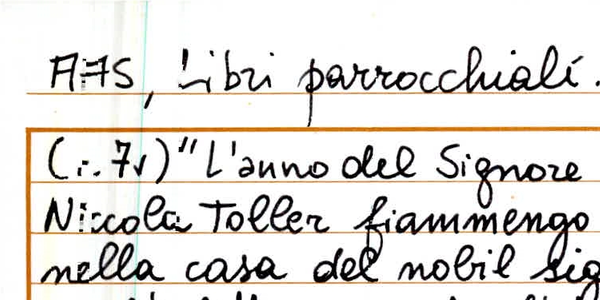 AFS, Libri parrocchiali.
(c. 7v) "L'anno del Signore
Niccola Toller fiammengo
nella casa del nobil sig